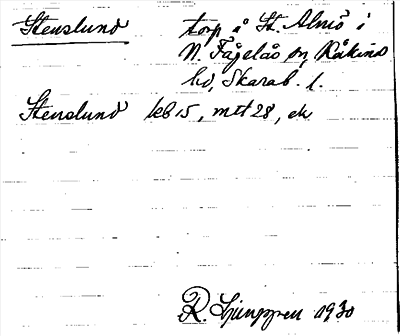 Stenslund torp å St. Almö i
N. Fågelås sn, Kåkinds
hd, Skarab. l.
Stenslund kb 15, mtl 28, ek
R. Ljunggren 1930